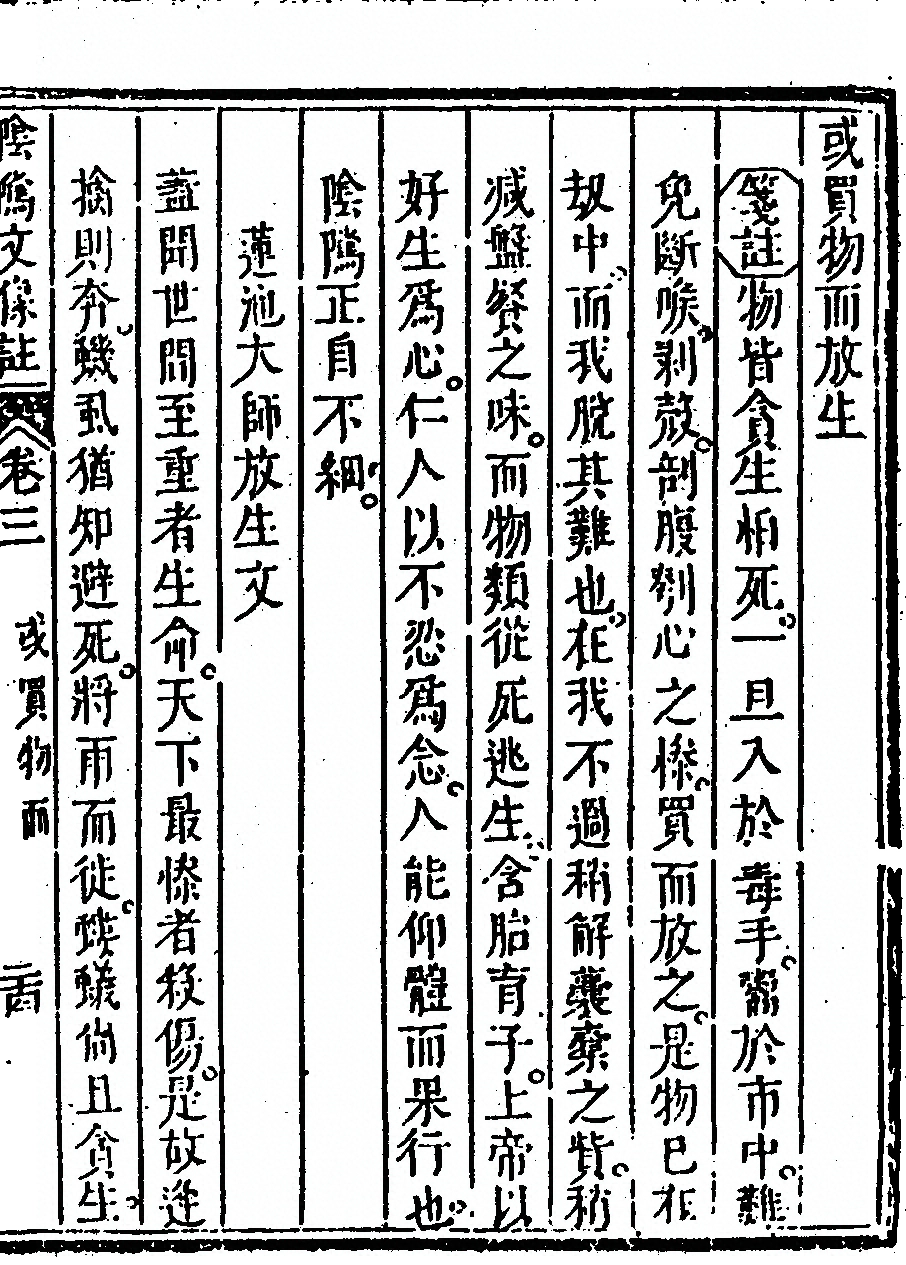 或買物而放生
箋註物皆貪生怕死一旦入於毒手鬻於市中難
免斷喉剥殼剖腹刳心之慘買而放之是物已在
刼中而我脫其難也在我不過稍解囊橐之貲稍
减盤餐之味而物類從死逃生含胎育子上帝以
好生爲心仁人以不忍爲念人能仰體而果行也
陰隲正自不細
蓮池大師放生文
葢聞世間至重者生命天下最慘者殺傷是故逢
擒則奔蟣虱猶知避死將雨而徙螻蟻尙且貪生
陰隲文像註 卷三 或買物而 二十四